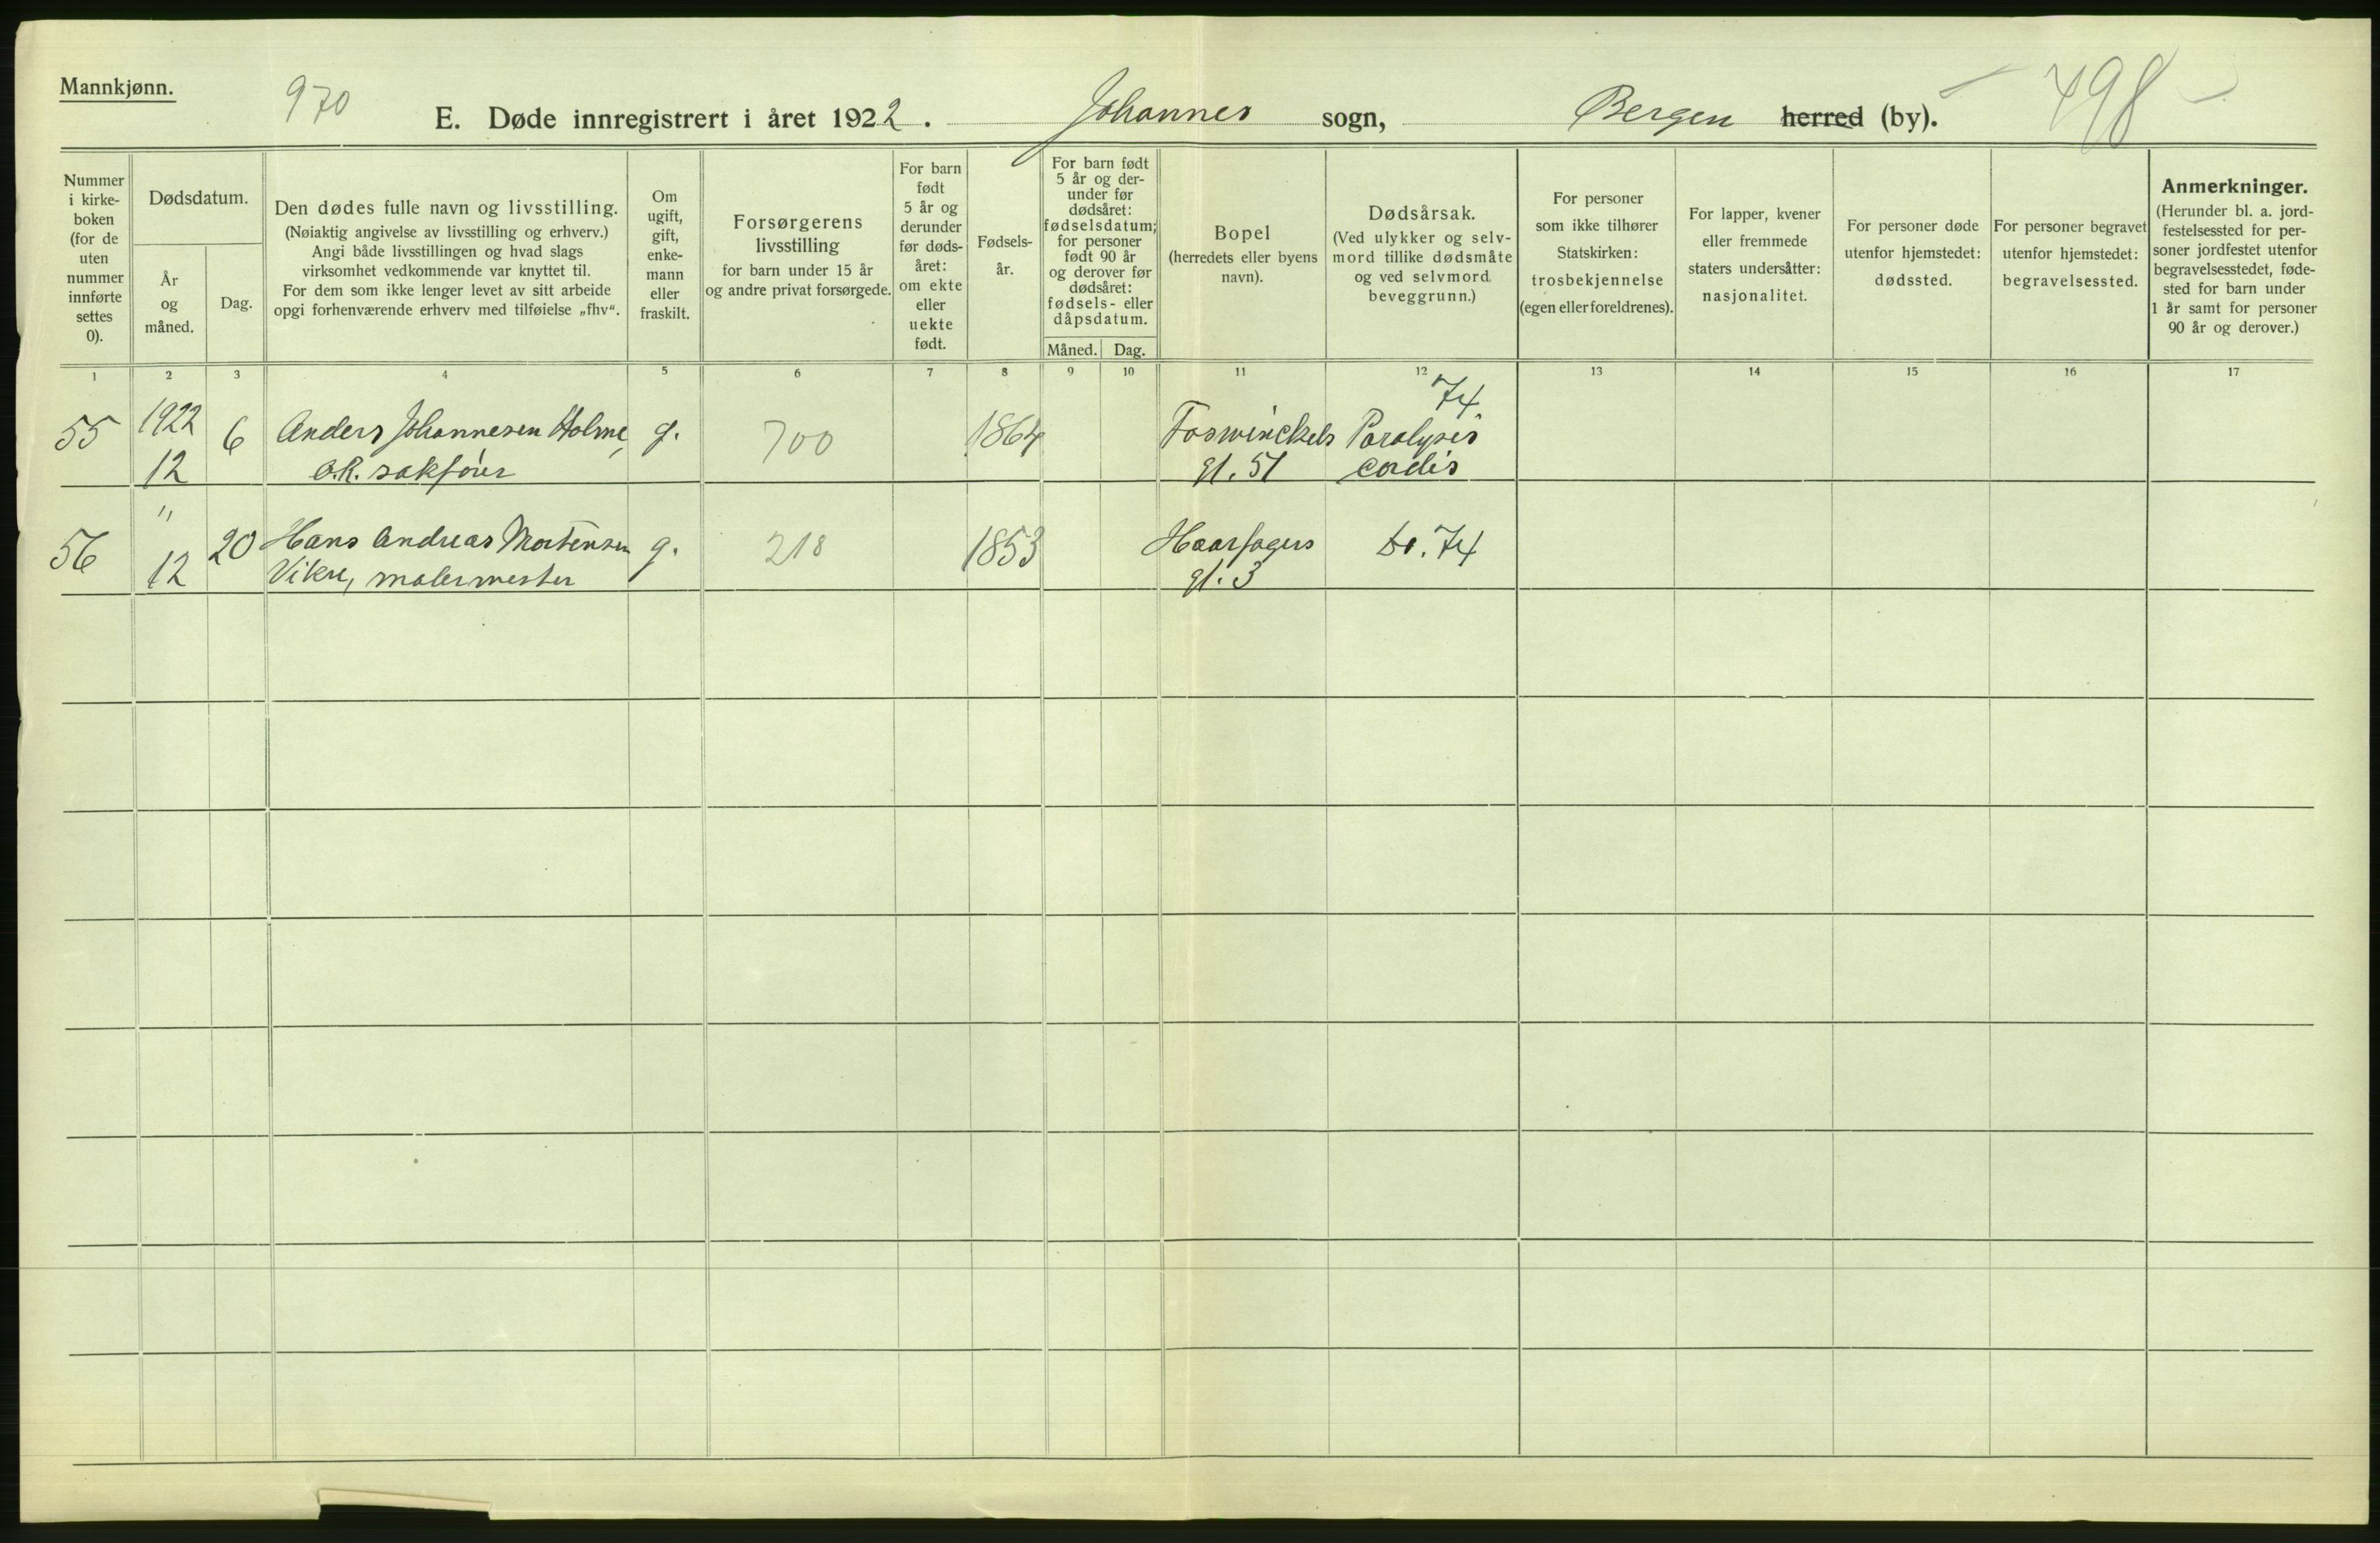 Mannkjønn.
970
E. Døde innregistrert i året 1922. Johannes sogn, Bergen herred (by).
498
Nummer
i kirke-
boken
(for de
uten
nummer
innførte
settes
0).
Dødsdatum.
År
og
måned.
Dag.
Den dødes fulle navn og livsstilling.
(Nøiaktig angivelse av livsstilling og erhverv.)
Angi både livsstillingen og hvad slags
virksomhet vedkommende var knyttet til.
For dem som ikke lenger levet av sitt arbeide
opgi forhenværende erhverv med tilføielse „fhv“.
Om
ugift,
gift,
enke-
mann
eller
fraskilt.
Forsørgerens
livsstilling
for barn under 15 år
og andre privat forsørgede.
For barn
født
5 år og
derunder
før døds-
året:
om ekte
eller
uekte
født.
Fødsels-
år.
For barn født
5 år og der-
under før
dødsåret:
fødselsdatum;
for personer
født 90 år
og derover før
dødsåret:
fødsels- eller
dåpsdatum.
Måned. Dag.
Bopel
(herredets eller byens
navn).
Dødsårsak.
(Ved ulykker og selv-
mord tillike dødsmåte
og ved selvmord
beveggrunn.)
For personer
som ikke tilhører
Statskirken:
trosbekjennelse
(egen eller foreldrenes).
For lapper, kvener
eller fremmede
staters undersåtter:
nasjonalitet.
For personer døde
utenfor hjemstedet:
dødssted.
For personer begravet
utenfor hjemstedet:
begravelsessted.
Anmerkninger.
(Herunder bl. a. jord-
festelsessted for per-
soner jordfestet utenfor
begravelsesstedet, føde-
sted for barn under
1 år samt for personer
90 år og derover.)
1 2 3 4 5 6 7 8 9 10 11 12 13 14 15 16 17
74
55 1922 6 Anders Johannesen Holme, g. 700 1864 Foswinckels Paralysis
12 O.R. sakfører gt. 51 cordis
"
56 20 Hans Andreas Mortensen g. 218 1853 Haarfagers do. 74
12 Vikre, malermester gt. 3